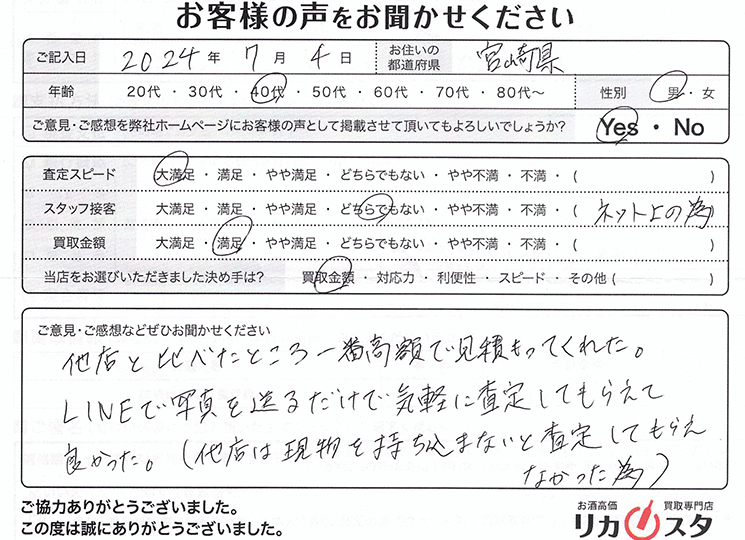 お客様の声をお聞かせください
ご記入日 2024 年 7 月 4 日 お住いの都道府県 宮崎県
年齢 20代 ・ 30代 ・ 40代 ・ 50代 ・ 60代 ・ 70代 ・ 80代〜 性別 男 ・ 女
ご意見・ご感想を弊社ホームページにお客様の声として掲載させて頂いてもよろしいでしょうか? Yes ・ No
査定スピード 大満足 ・ 満足 ・ やや満足 ・ どちらでもない ・ やや不満 ・ 不満 ・ ( )
スタッフ接客 大満足 ・ 満足 ・ やや満足 ・ どちらでもない ・ やや不満 ・ 不満 ・ ( ネット上の為 )
買取金額 大満足 ・ 満足 ・ やや満足 ・ どちらでもない ・ やや不満 ・ 不満 ・ ( )
当店をお選びいただきました決め手は? 買取金額 ・ 対応力 ・ 利便性 ・ スピード ・ その他 ( )
ご意見・ご感想などぜひお聞かせください
他店と比べたところ一番高額で見積もってくれた。
LINEで写真を送るだけで気軽に査定してもらえて
良かった。(他店は現物を持ち込まないと査定してもらえ
なかった為)
ご協力ありがとうございました。
この度は誠にありがとうございました。
お酒高価 買取専門店
リカスタ